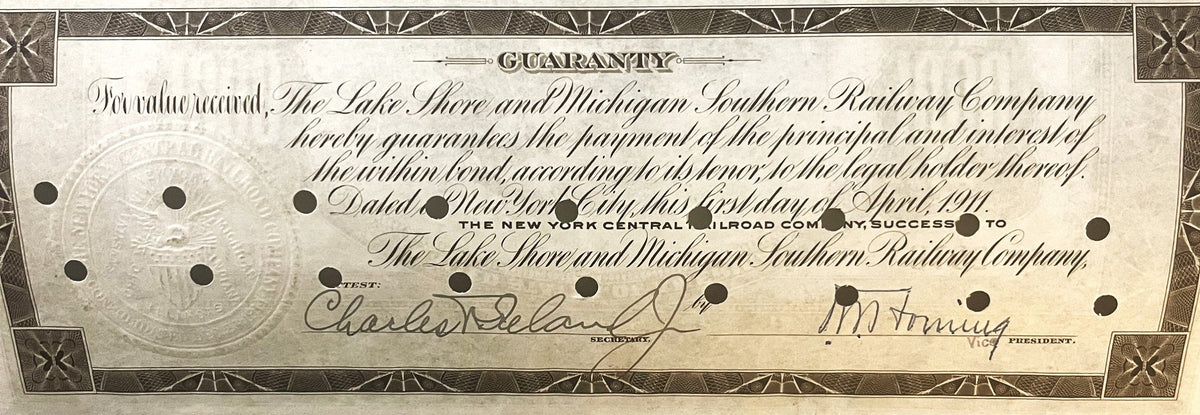 GUARANTY
For value received, The Lake Shore and Michigan Southern Railway Company
hereby guarantees the payment of the principal and interest of
the within bond, according to its tenor, to the legal holder thereof.
Dated at New York City, this first day of April, 1911.
THE NEW YORK CENTRAL RAILROAD COMPANY, SUCCESSOR TO
The Lake Shore and Michigan Southern Railway Company,
ATTEST:
by
Charles
Jr
SECRETARY.
Vice PRESIDENT.